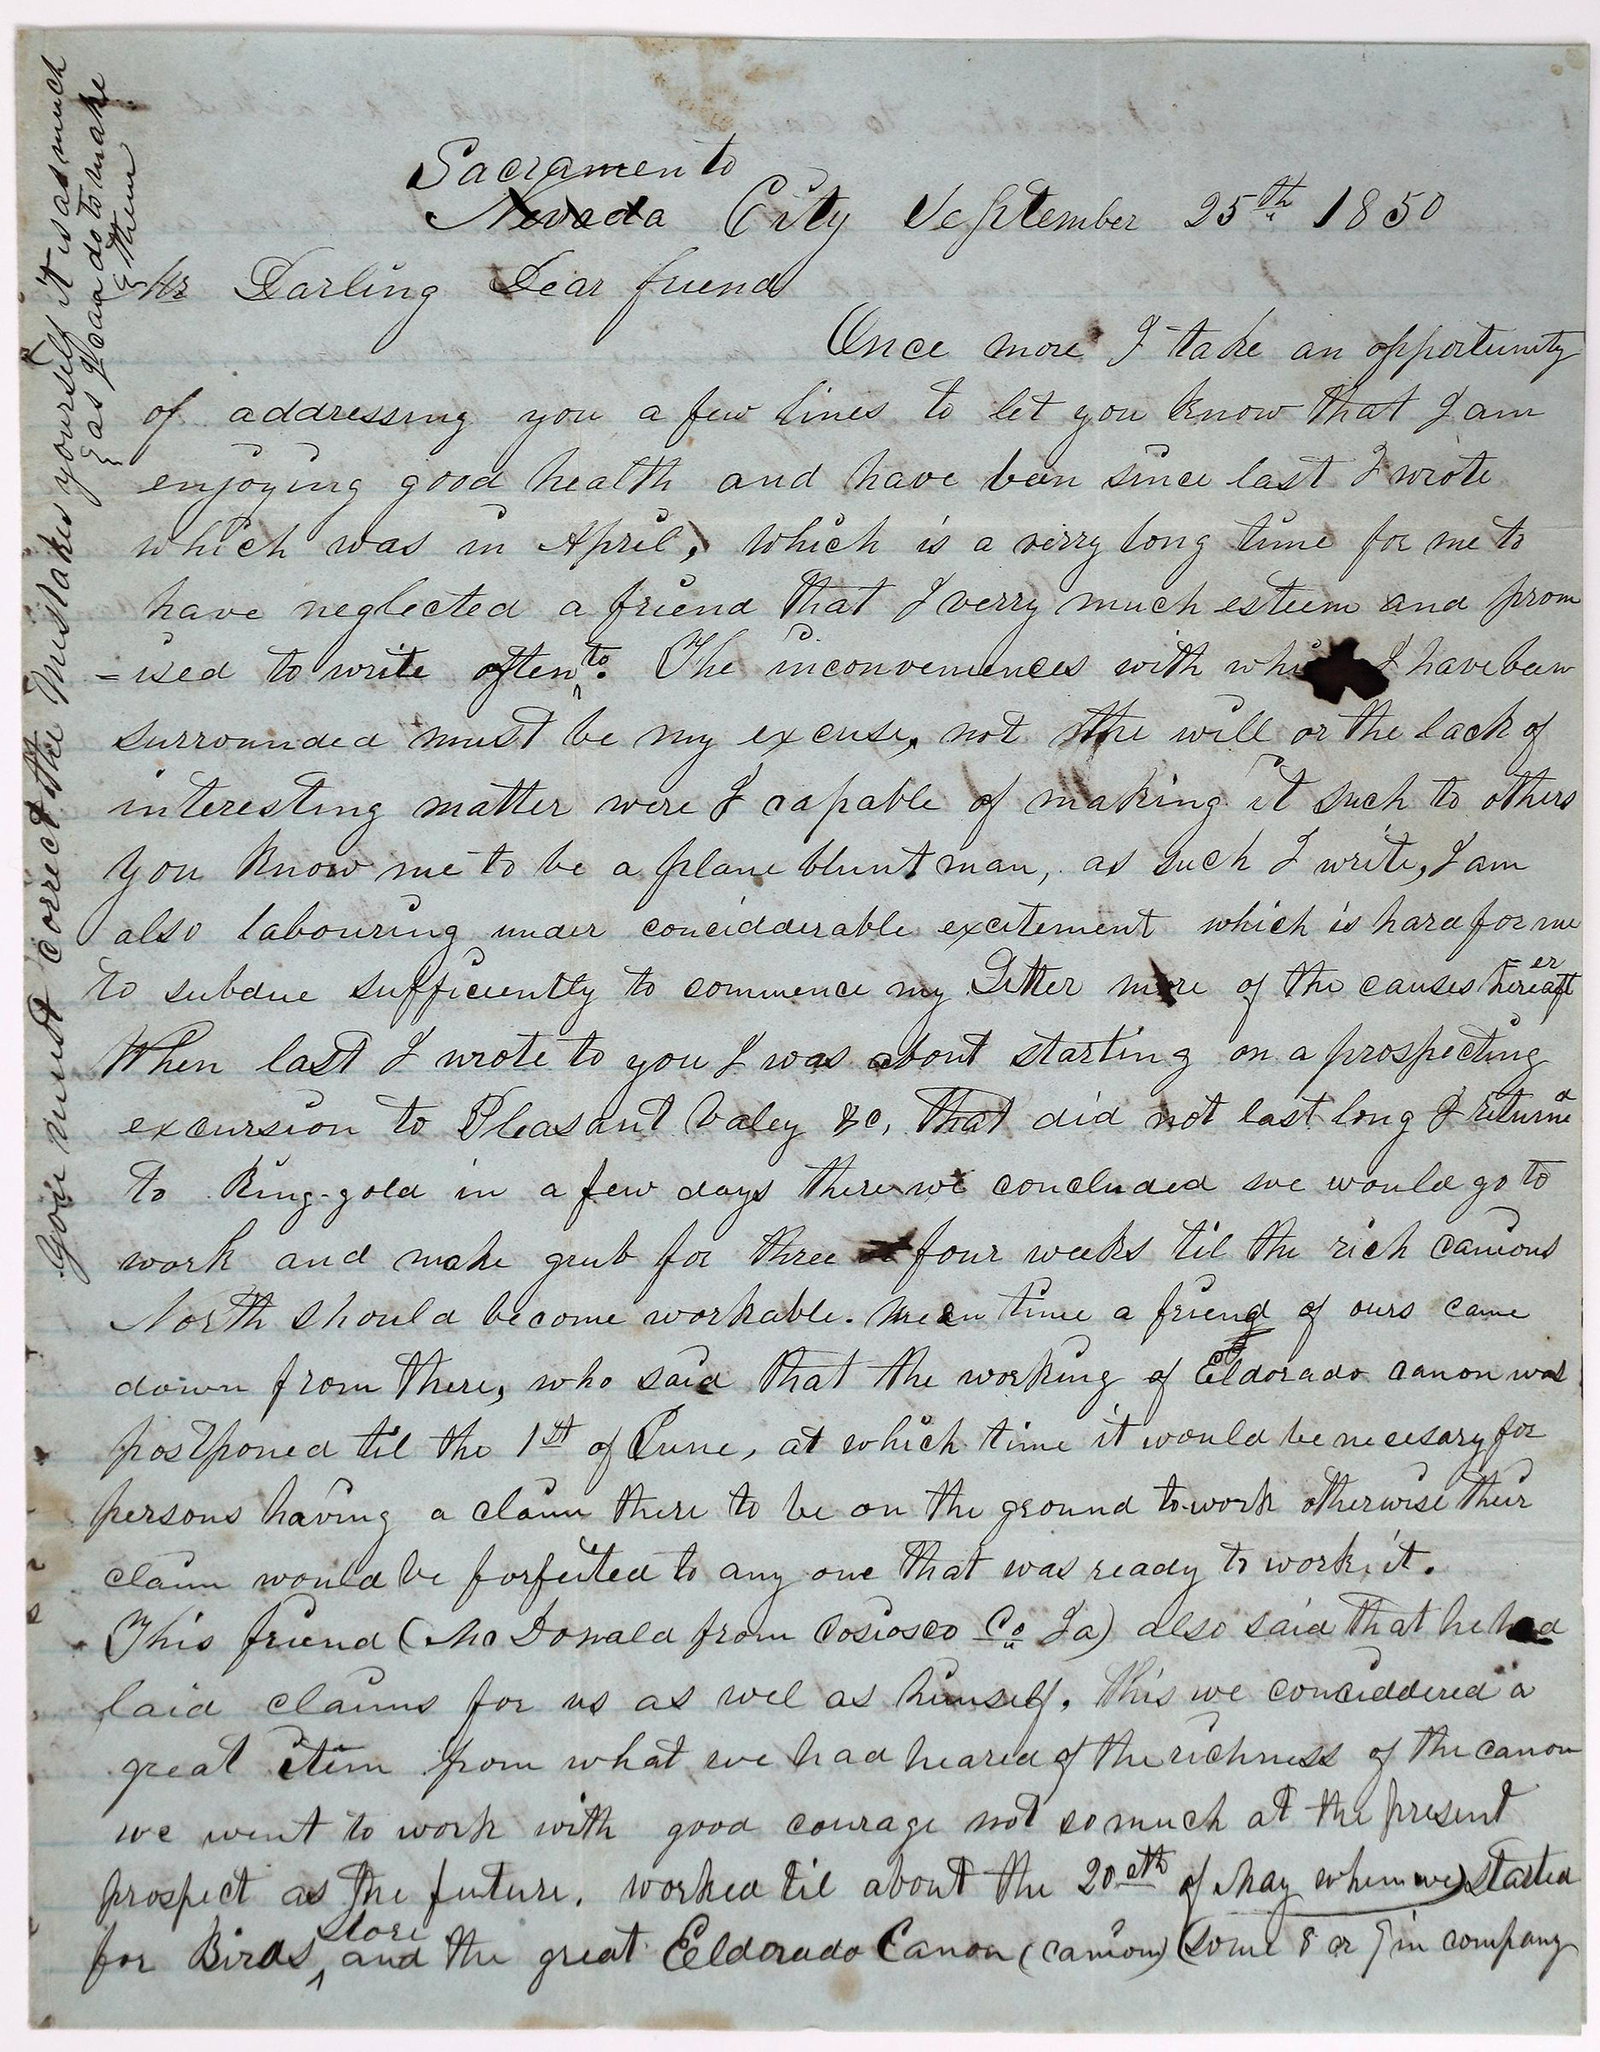 Sacramento
Nevada City September 25th 1850
Mr Darling Dear friend
Once more I take an opportunity
of addressing you a few lines to let you know that I am
enjoying good health and have been since last I wrote
which was in April, which is a verry long time for me to
have neglected a friend that I verry much esteem and prom
=ised to write often to. The inconveniences with whi I have been
surrounded must be my excuse, not the will or the lack of
interesting matter were I capable of making it such to others
you know me to be a plane blunt man, as such I write, I am
also labouring under concidderable excitement which is hard for me
to subdue sufficiently to commence my Letter more of the causes hereafter
When last I wrote to you I was about starting on a prospecting
excursion to Pleasant Valey &c, that did not last long I returned
to Ring-gold in a few days there we concluded we would go to
work and make grub for three or four weeks til the rich canions
North should become workable. Mean time a friend of ours came
down from there, who said that the working of Eldorado canon was
postponed til the 1st of June, at which time it would be necesary for
persons having a claim there to be on the ground to work otherwise their
claim would be forfeited to any one that was ready to work it.
This friend (Mc Donald from Cosiosco Co Ia) also said that he had
laid claims for us as wel as himself. This we conciddered a
great item from what we had heared of the richness of the canon
we went to work with good courage not so much at the present
prospect as the future. worked til about the 20eth of May when we started
for Birds store and the great Eldorado Canon (canion) (some 8 or 9 in company
You must correct the mistakes yourself it is as much
as I can do to make
them